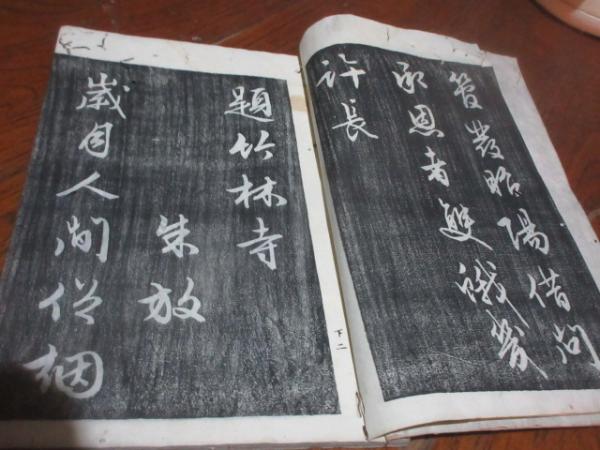 管發昭陽借問
承恩者雙蛾幾
許長
題竹林寺
朱放
歲月人間促烟
下二